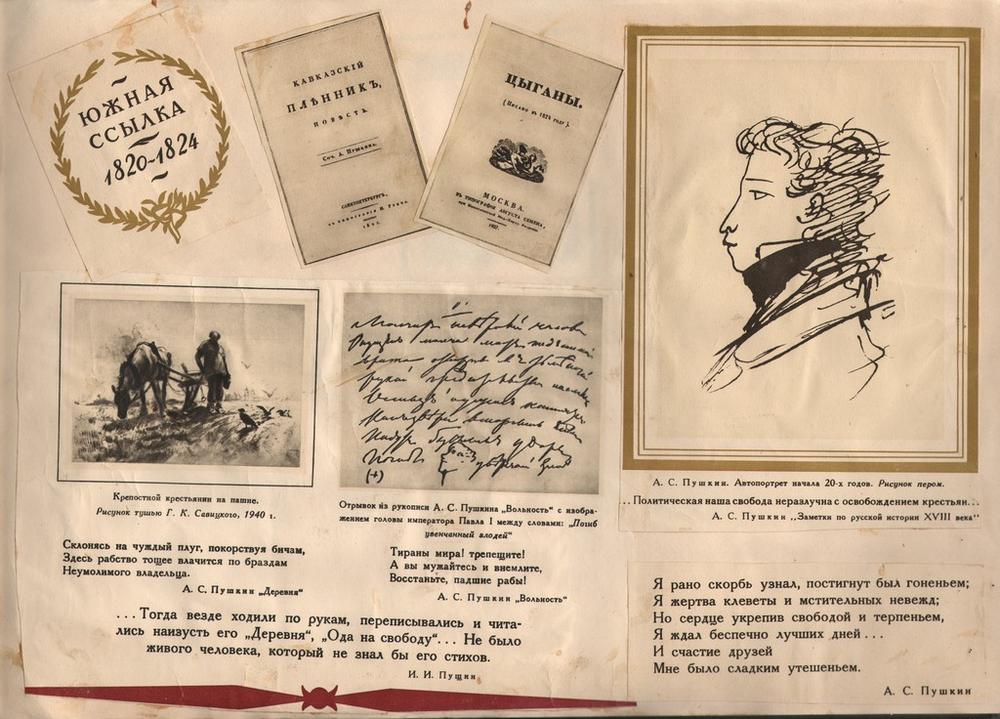 ЮЖНАЯ
ССЫЛКА
1820-1824
КАВКАЗСКІЙ
ПЛѢННИКЪ,
ПОВѢСТЬ.
Соч. А. Пушкина.
САНКТПЕТЕРБУРГЪ,
ЦЫГАНЫ.
(Писано въ 1824 году).
МОСКВА.
ВЪ ТИПОГРАФІИ АВГУСТА СЕМЕНА,
1827.
А. С. Пушкин. Автопортрет начала 20-х годов. Рисунок пером.
...Политическая наша свобода неразлучна с освобождением крестьян...
А. С. Пушкин „Заметки по русской истории XVIII века"
Крепостной крестьянин на пашне.
Рисунок тушью Г. К. Савицкого, 1940 г.
Отрывок из рукописи А. С. Пушкина „Вольность" с изобра-
жением головы императора Павла I между словами: „Погиб
увенчанный злодей"
Склонясь на чуждый плуг, покорствуя бичам,
Здесь рабство тощее влачится по браздам
Неумолимого владельца.
А. С. Пушкин „Деревня"
Тираны мира! трепещите!
А вы мужайтесь и внемлите,
Восстаньте, падшие рабы!
А. С. Пушкин „Вольность"
...Тогда везде ходили по рукам, переписывались и чита-
лись наизусть его „Деревня", „Ода на свободу"... Не было
живого человека, который не знал бы его стихов.
И. И. Пущин
Я рано скорбь узнал, постигнут был гоненьем;
Я жертва клеветы и мстительных невежд;
Но сердце укрепив свободой и терпеньем,
Я ждал беспечно лучших дней...
И счастие друзей
Мне было сладким утешеньем.
А. С. Пушкин